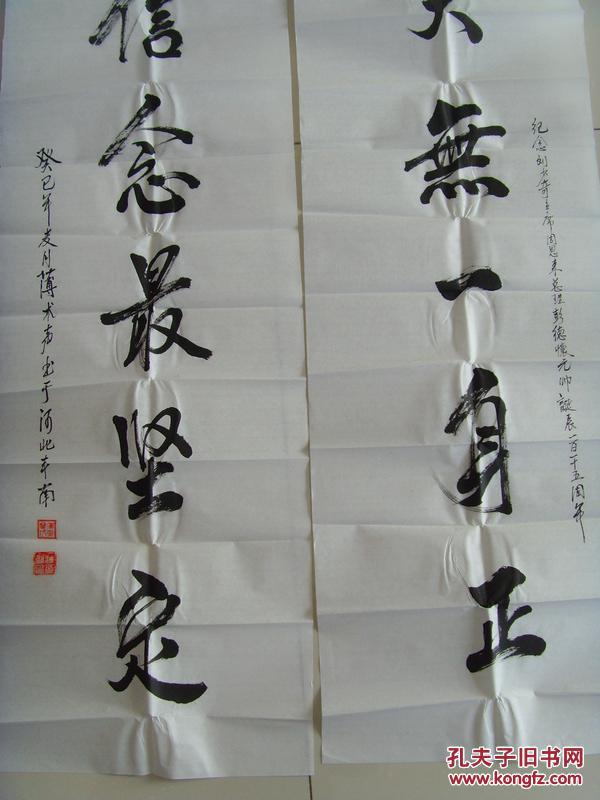 纪念刘少奇主席周恩来总理彭德懷元帅誕辰一百一十五周年
無一身正
信念最坚定
癸巳年夏月薄书于河北南
孔夫子旧书网
www.kongfz.com